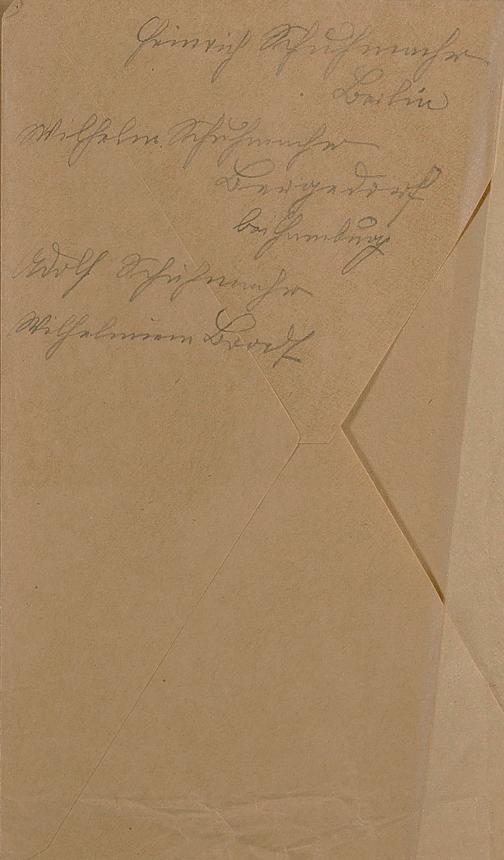 Heinrich Schuhmacher
Berlin
Wilhelm Schuhmacher
Bergedorf
bei Hamburg
Adolf Schuhmacher
Brodt